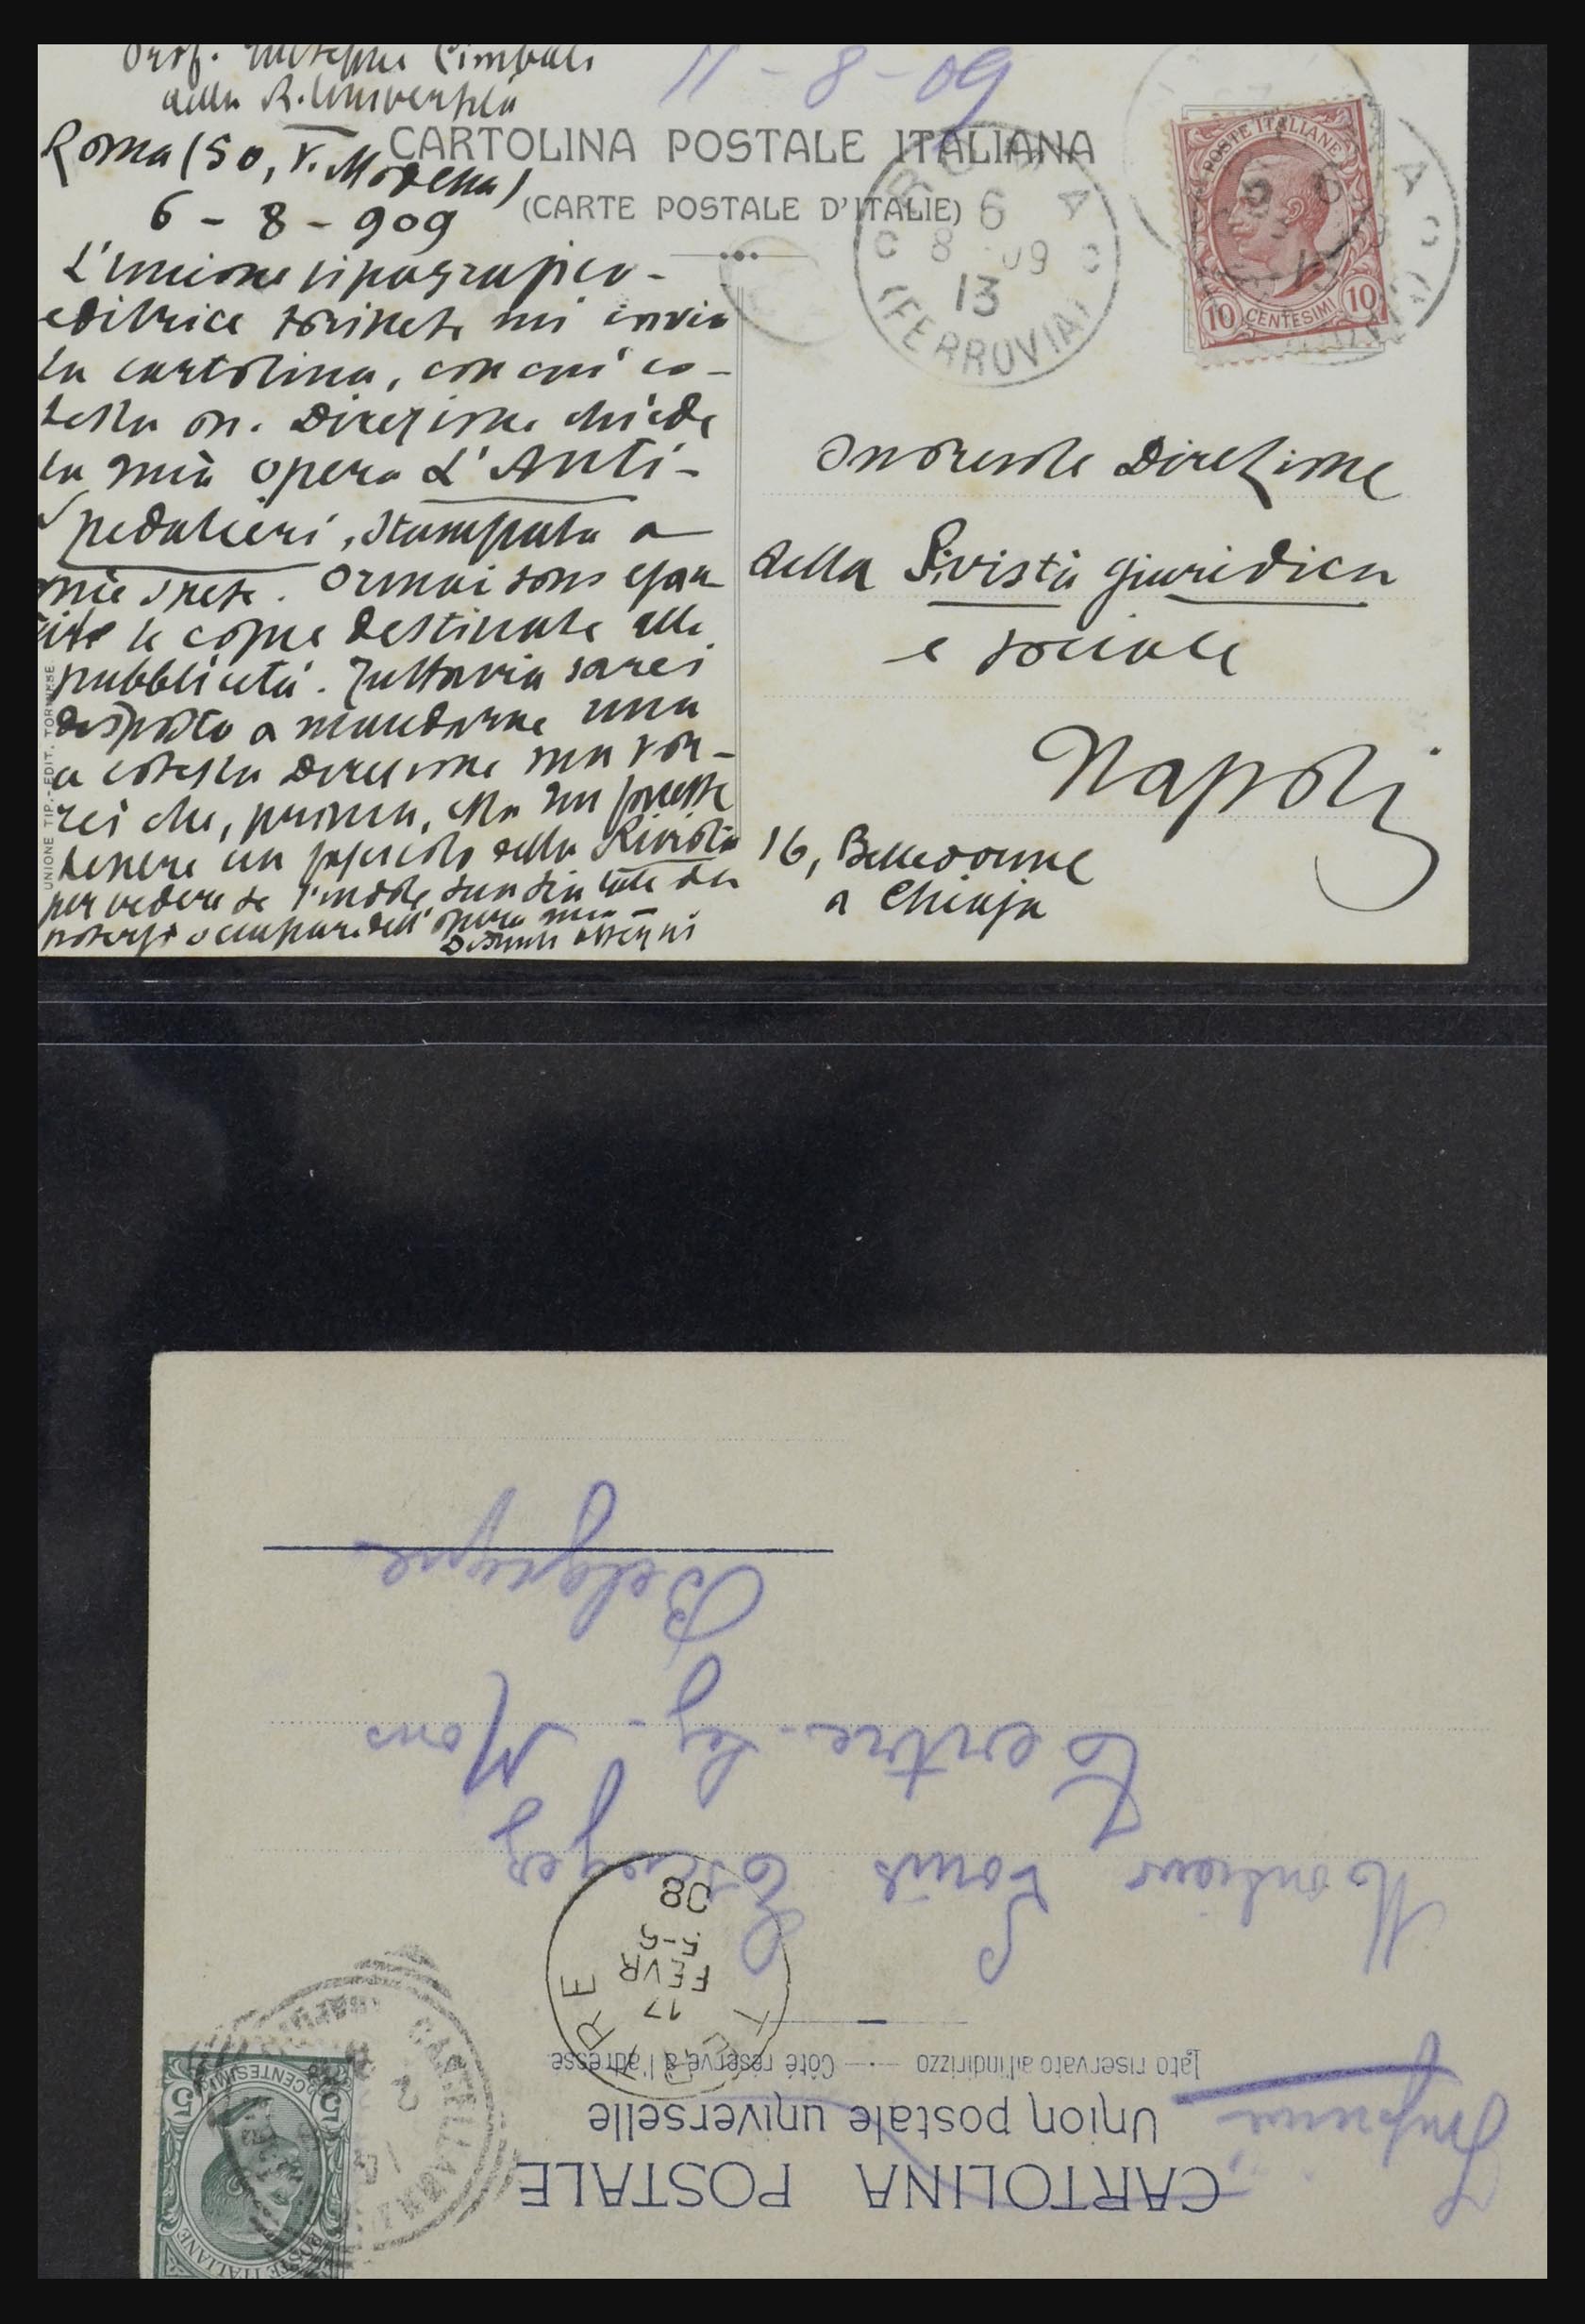 Prof. Giuseppe Cimbali
della R. Università
Roma (50, V. Modena)
6 - 8 - 909
11 - 8 - 09
CARTOLINA POSTALE ITALIANA
(CARTE POSTALE D'ITALIE)
ROMA
6
8 09
13
(FERROVIA)
POSTE ITALIANE
10 CENTESIMI 10
L'unione tipografico-
editrice torinese mi invia
la cartolina, con cui co-
testa on. Direzione chiede
la mia opera L'Anti-
Spedalieri, stampata a
mie spese. Ormai sono esau-
rite le copie destinate alla
pubblicità. Tuttavia sarei
disposto a mandarne una
a cotesta Direzione ma vor-
rei che, prima, essa mi facesse
tenere un fascicolo della Rivista
per vedere se l'indole sua sia tale da
potersi occupare dell'opera mia
Distinti ossequi
UNIONE TIP.-EDIT. TORINESE
Onorevole Direzione
della Rivista giuridica
e sociale
Napoli
16, Belledonne
a Chiaja
CARTOLINA POSTALE
Union postale universelle
Lato riservato all'indirizzo — Côté réservé à l'adresse
POSTE ITALIANE
5 CENTESIMI 5
CASTELLAMMARE
TERTRE
17
FEVR
5-6
08
Monsieur Louis
Tertre-lez-Mons
Belgique